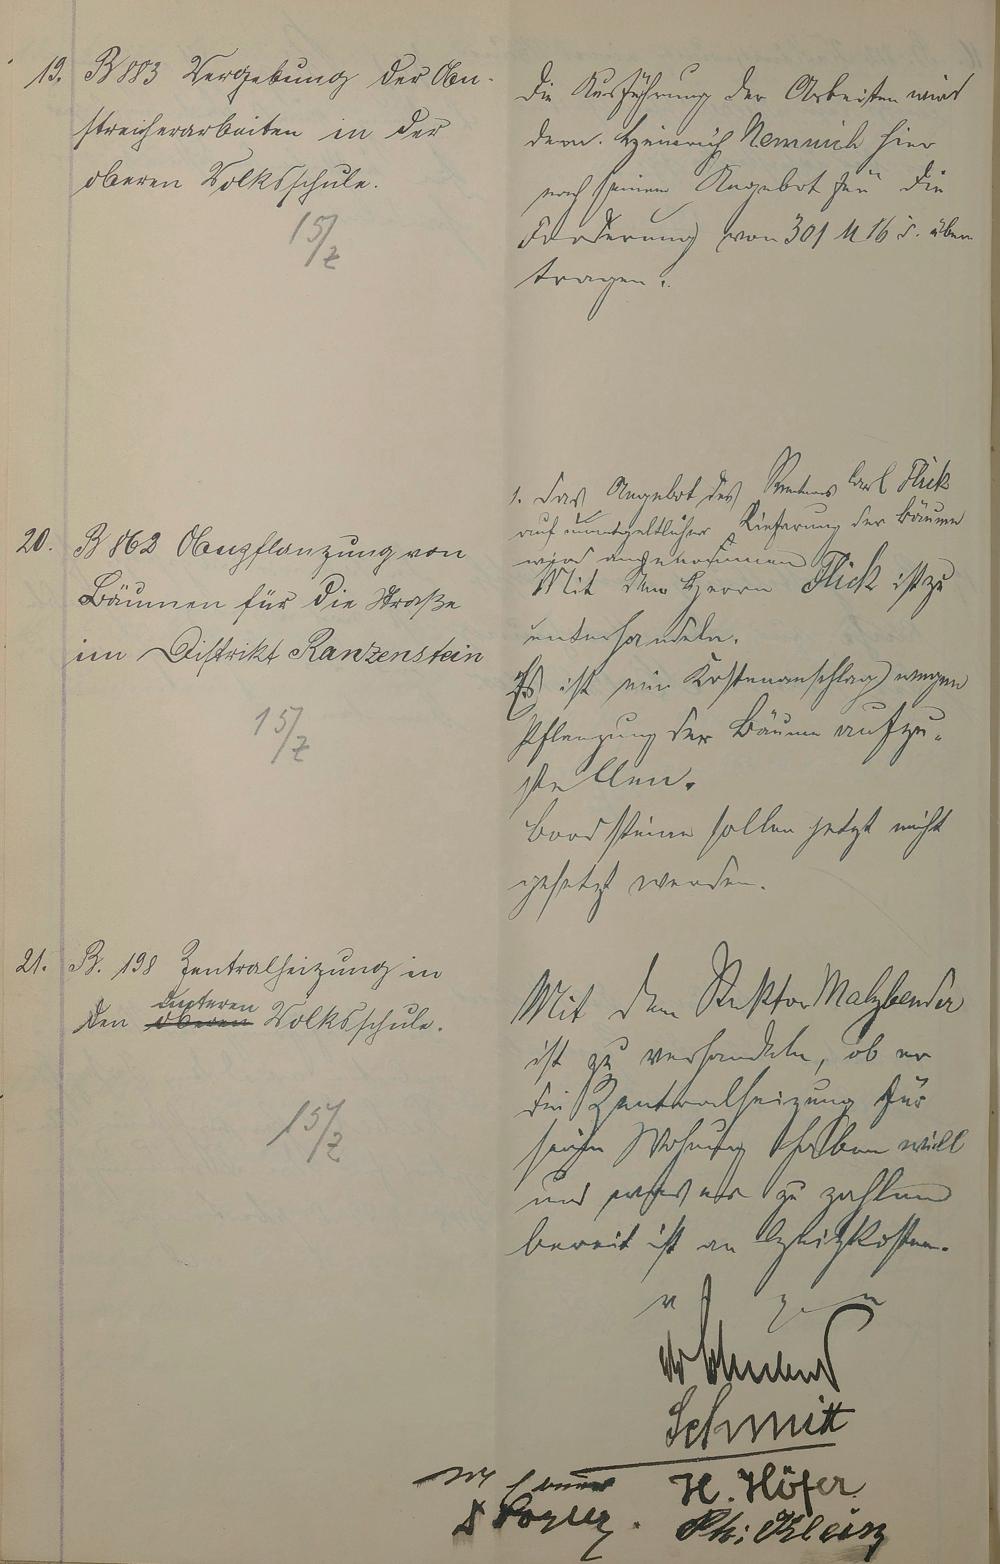 19. B 883 Vergebung der An-
streicherarbeiten in der
oberen Volksschule.
15/7
Die Ausführung der Arbeiten wird
dem. Heinrich Nemnich hier
nach seinem Angebot für die
Forderung von 301 M 16 d. über
tragen.
20. B 862 Anpflanzung von
Bäumen für die Straße
im Distrikt Ranzenstein
15/7
1. Das Angebot des Rentners Carl Flick
auf unentgeltlicher Lieferung der Bäume
wird angenommen
Mit dem Herrn Flick ist zu
unterhandeln.
Es ist ein Kostenanschlag wegen
Pflanzung der Bäume aufzu-
stellen.
Bordsteine sollen jetzt nicht
gesetzt werden.
21. B. 198 Zentralheizung in
den unteren oberen Volksschule.
15/7
Mit dem Rektor Malzbender
ist zu verhandeln, ob er
die Zentralheizung für
seine Wohnung haben will
und was er zu zahlen
bereit ist an Heizkosten.
v g u
Schmitt
H. Höfer
Ph: Klein